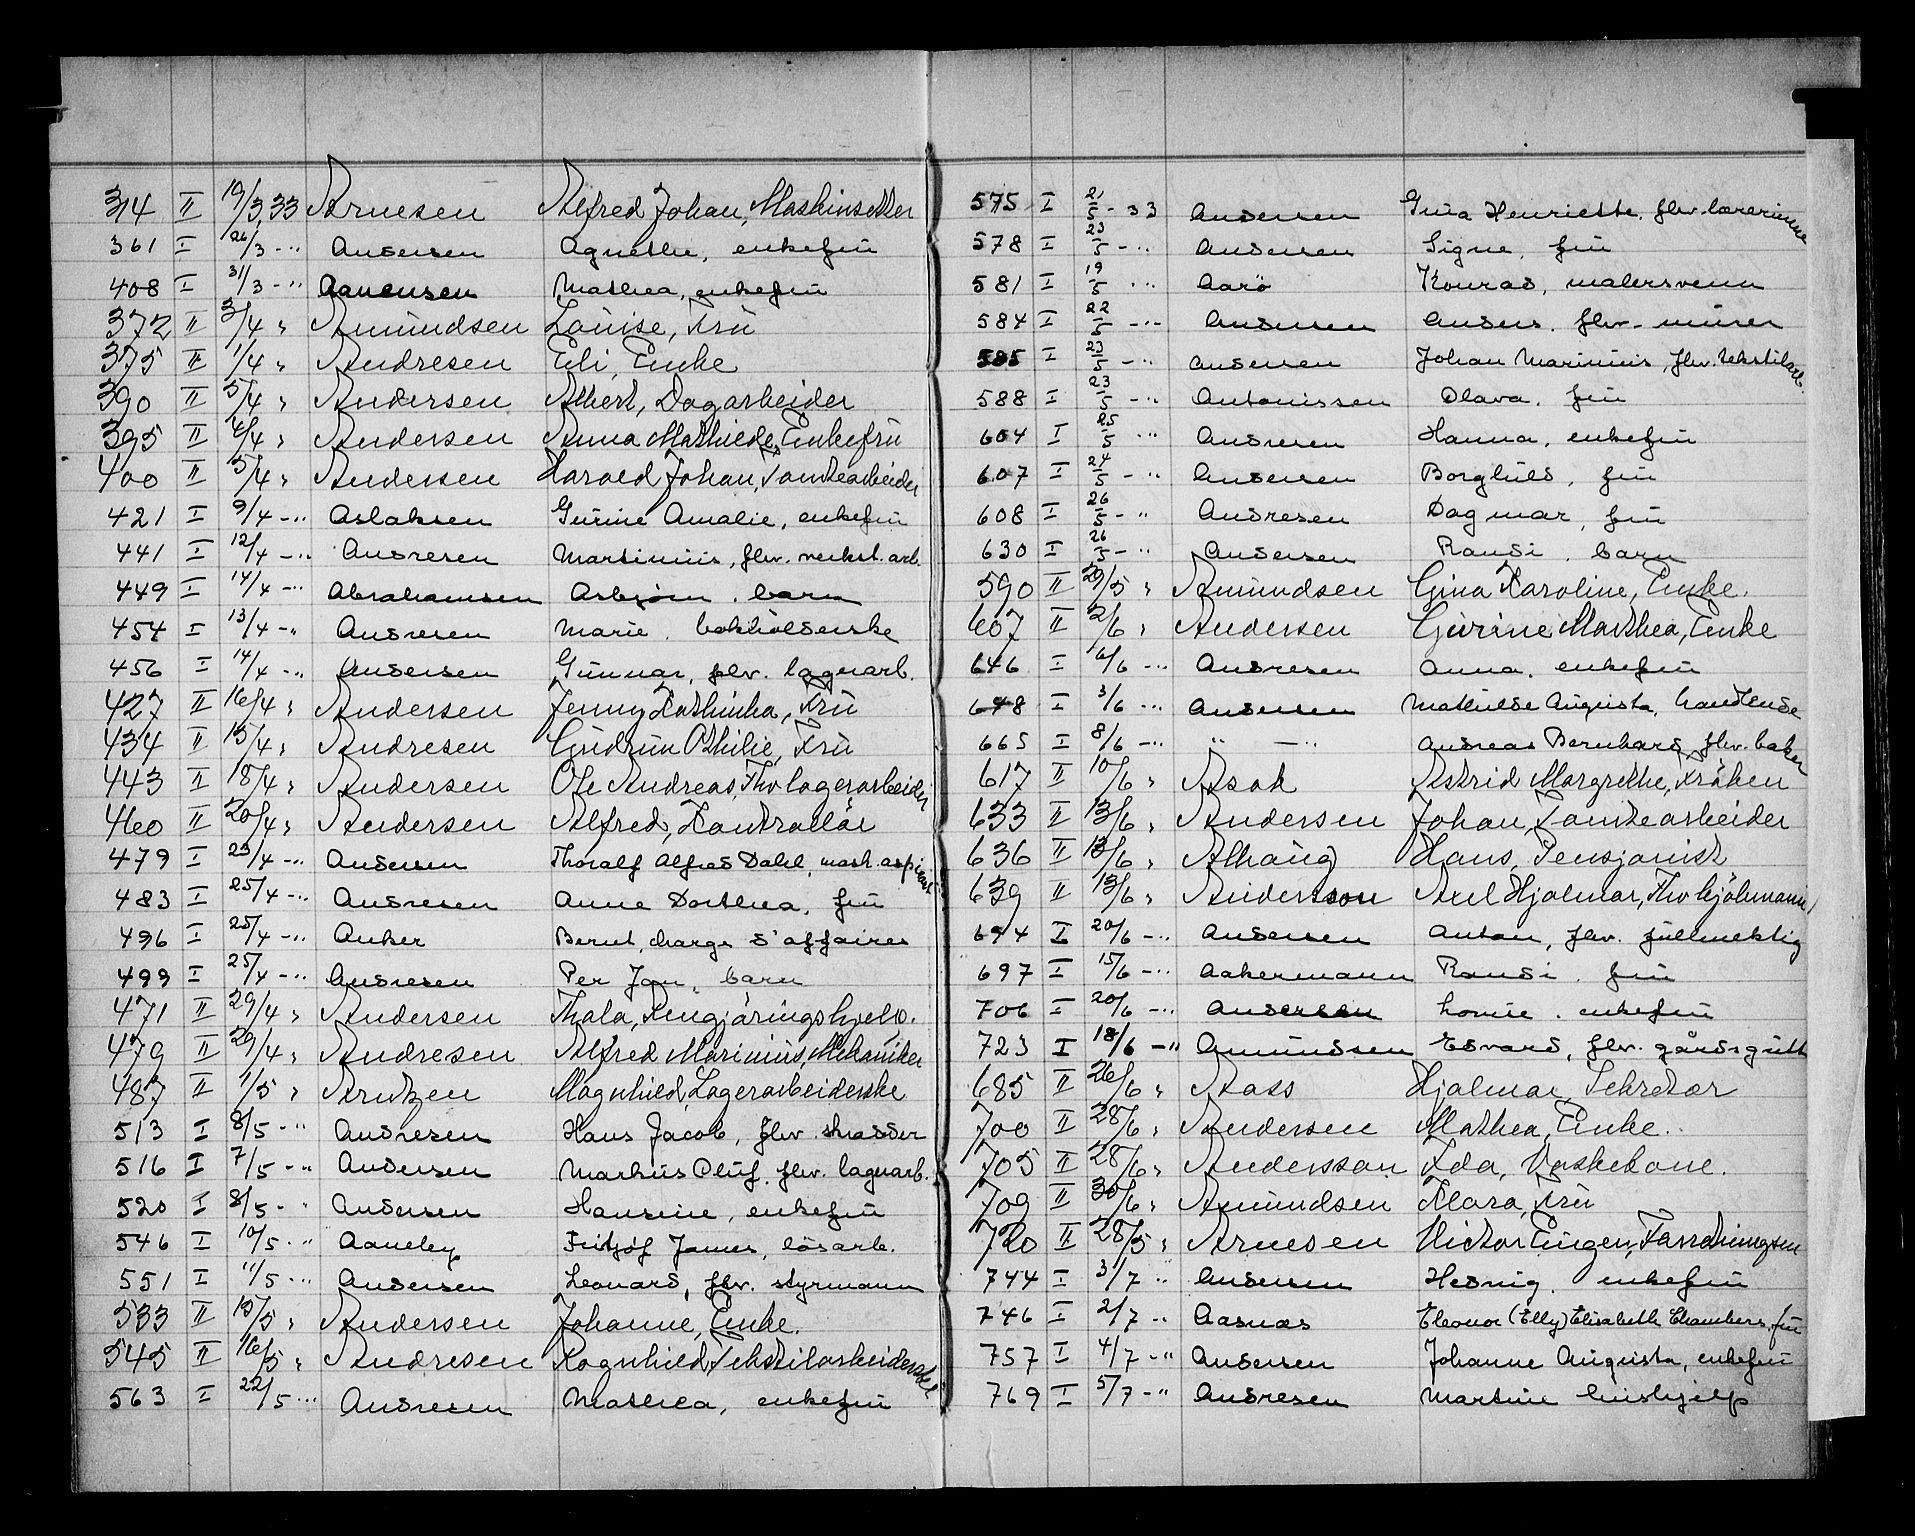 314 II 19/3 33 Arnesen Alfred Johan, Maskinsetter
361 I 26/3 -" Andersen Agnethe, enkefru
408 I 31/3 -" Aanensen Mathea, enkefru
372 II 3/4 " Amundsen Louise, Fru
375 II 1/4 " Andresen Eli, Enke
390 II 5/4 " Andersen Albert, Dagarbeider
395 II 4/4 " Andersen Anna Mathilde, Enkefru
400 II 5/4 " Andersen Harald Johan, Tomtearbeider
421 I 9/4 -" Aslaksen Gurine Amalie, enkefru
441 I 12/4 -" Andresen Martinius, fhv. verkst. arb.
449 I 14/4 -" Abrahamsen Asbjørn, barn
454 I 13/4 -" Andresen Marie, bokholderske
456 I 14/4 -" Andersen Gunnar, fhv. lagerarb.
427 II 16/4 " Andersen Jenny Kathinka, Fru
434 II 15/4 " Andresen Gudrun Othilie, Fru
443 II 18/4 " Andersen Ole Andreas, Fhv lagerarbeider
460 II 20/4 " Andersen Alfred, Kontrollør
479 I 23/4 -" Andersen Thoralf Alfred Dahl, mask. aspirant
483 I 25/4 -" Andresen Anne Dorthea, fru
496 I 25/4 -" Anker Bernt, charge d'affaires
499 I 25/4 -" Andresen Per Jan, barn
471 II 29/4 " Andersen Thala, Rengjøringshjelp.
479 II 29/4 " Andresen Alfred Marinius, Mekaniker
487 II 1/5 " Arntzen Magnhild, Lagerarbeiderske
513 I 8/5 -" Andresen Hans Jacob, fhv. skredder
516 I 7/5 -" Andersen Markus Oluf, fhv. lagerarb.
520 I 8/5 -" Andersen Hansine, enkefru
546 I 10/5 -" Aaneby Fritjof James, løsarb.
551 I 11/5 -" Andersen Leonard, fhv. styrmann
533 II 15/5 " Andersen Johanne, Enke.
545 II 16/5 " Andresen Ragnhild, Tekstilarbeiderske
563 I 22/5 -" Andresen Mathea, enkefru
575 I 21/5 - 33 Andersen Gina Henriette, fhv. lærerinne
578 I 23/5 -" Andersen Signe, fru
581 I 19/5 " Aarø Konrad, malersvenn
584 I 22/5 -" Andersen Anders, fhv. murer
585 I 23/5 -" Andersen Johan Marinius, fhv. tekstilarb.
588 I 23/5 -" Antonissen Olava, fru
604 I 25/5 " Andresen Hanna, enkefru
607 I 24/5 -" Andersen Borghild, fru
608 I 26/5 -" Andresen Dagmar, fru
630 I 26/5 -" Andersen Randi, barn
590 II 29/5 " Amundsen Gina Karoline, Enke.
607 II 2/6 " Andersen Gurine Mathea, Enke
646 I 6/6 -" Andresen Anna, enkefru
648 I 3/6 -" Andersen Mathilde Augusta, handlende
665 I 8/6 -" " -" Andreas Bernhard, fhv. baker
617 II 10/6 " Asak Astrid Margrethe, Frøken
633 II 13/6 " Andersen Johan, Tomtearbeider
636 II 13/6 " Alhaug Hans, Pensjonist
639 II 13/6 " Andersson Axel Hjalmar, Fhv kjøbmann
694 I 20/6 -" Andersen Anton, fhv. fullmektig
697 I 15/6 -" Aakermann Randi, fru
706 I 20/6 -" Andersen Lovise, enkefru
723 I 18/6 -" Amundsen Edvard, fhv. gårdsgutt
685 II 26/6 " Aass Hjalmar, Sekretær
700 II 28/6 " Andersen Mathea, Enke.
705 II 28/6 " Andersson Ida, Vaskekone.
709 II 30/6 " Amundsen Klara, Fru
720 II 28/5 " Arnesen Victor Eugen, Forretningsm
744 I 3/7 " Andersen Hedvig, enkefru
746 I 2/7 " Aasnæs Eleonor (Elly) Elisabeth Chambers, fru
757 I 4/7 -" Andersen Johanne Augusta, enkefru
769 I 5/7 -" Andresen Martine hushjelp